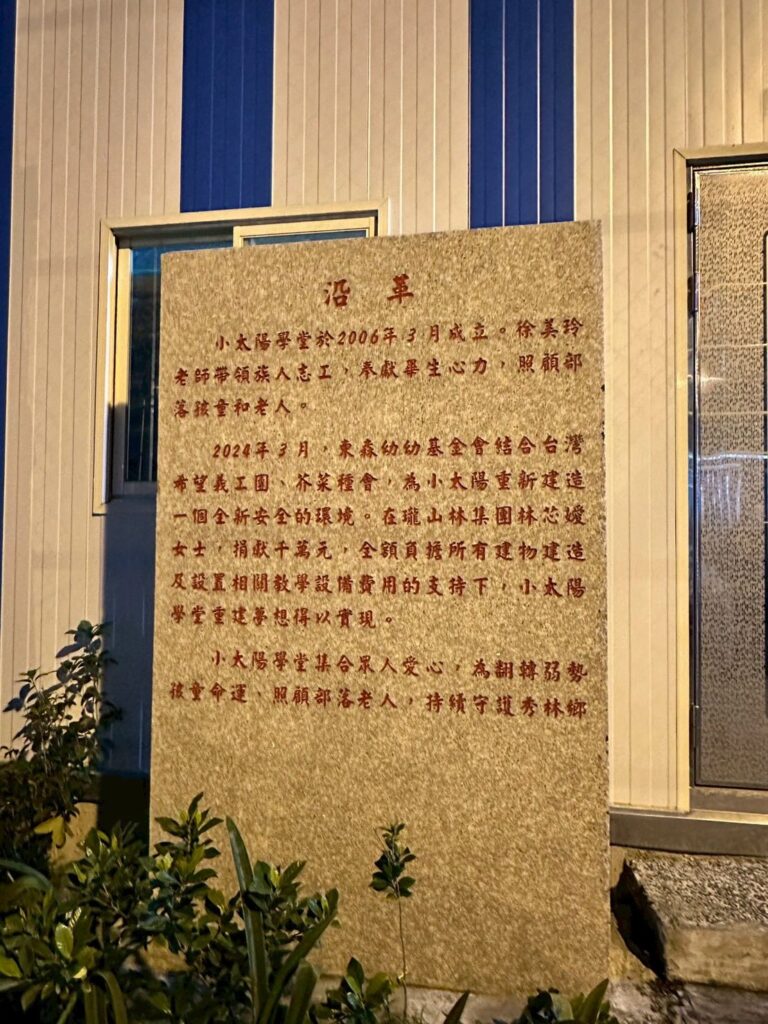 沿革
小太陽學堂於2006年3月成立。徐美玲
老師帶領族人志工，奉獻畢生心力，照顧部
落孩童和老人。
2024年3月，東森幼幼基金會結合台灣
希望義工團、芥菜種會，為小太陽重新建造
一個全新安全的環境。在瓏山林集團林芯嫒
女士，捐獻千萬元，全額負擔所有建物建造
及設置相關教學設備費用的支持下，小太陽
學堂重建夢想得以實現。
小太陽學堂集合眾人愛心，為翻轉弱勢
孩童命運、照顧部落老人，持續守護秀林鄉